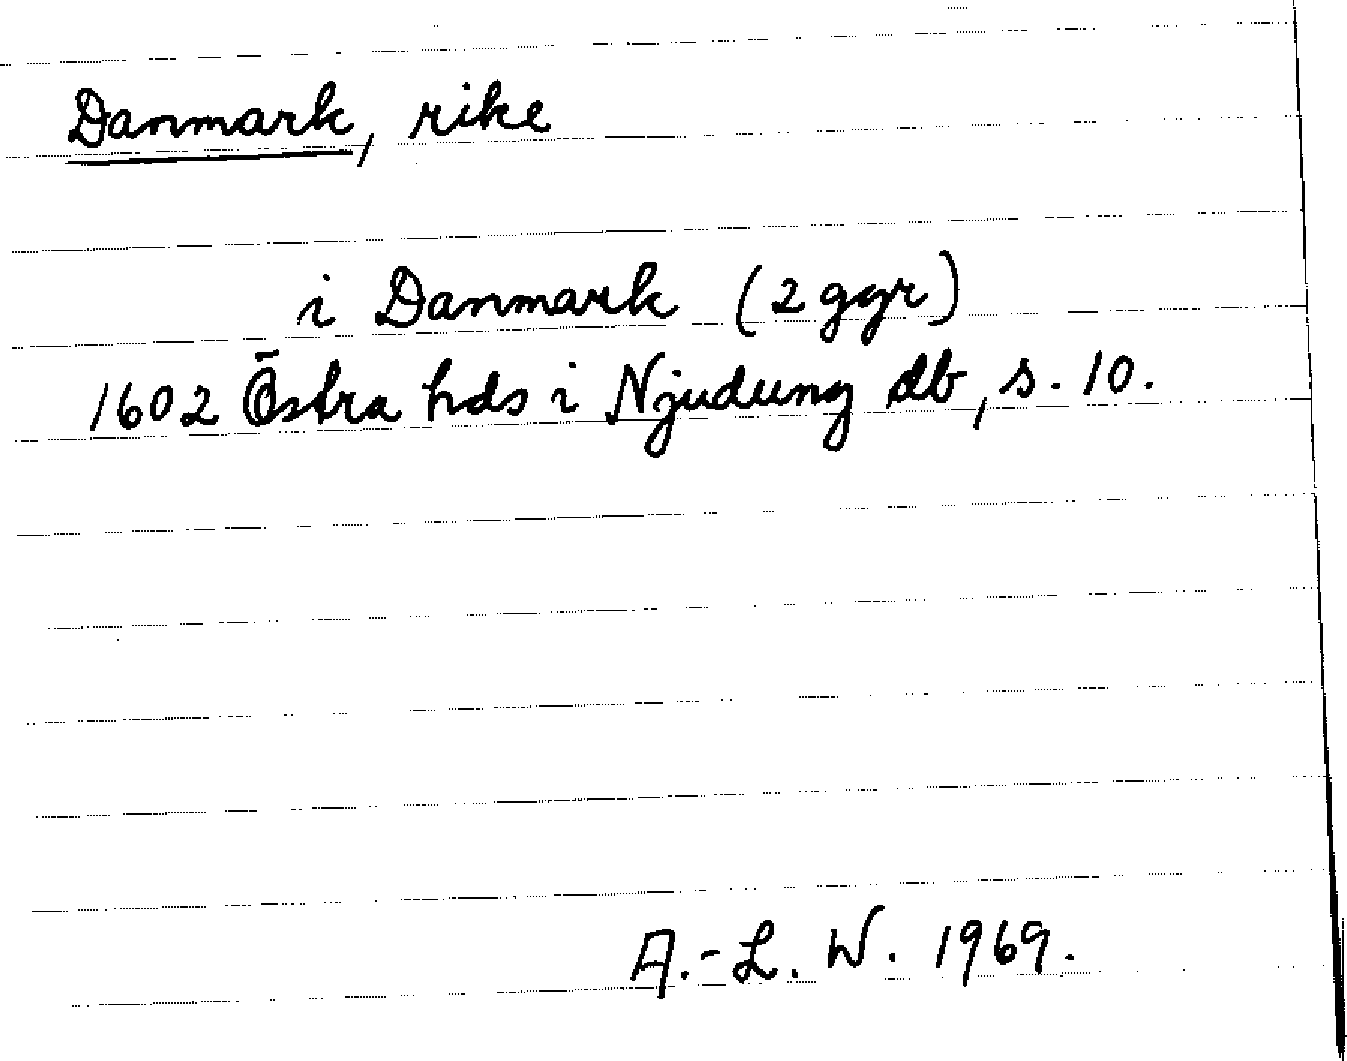 Danmark, rike
i Danmark (2 ggr)
1602 Östra hds i Njudung db, s. 10.
A.-L. W. 1969.